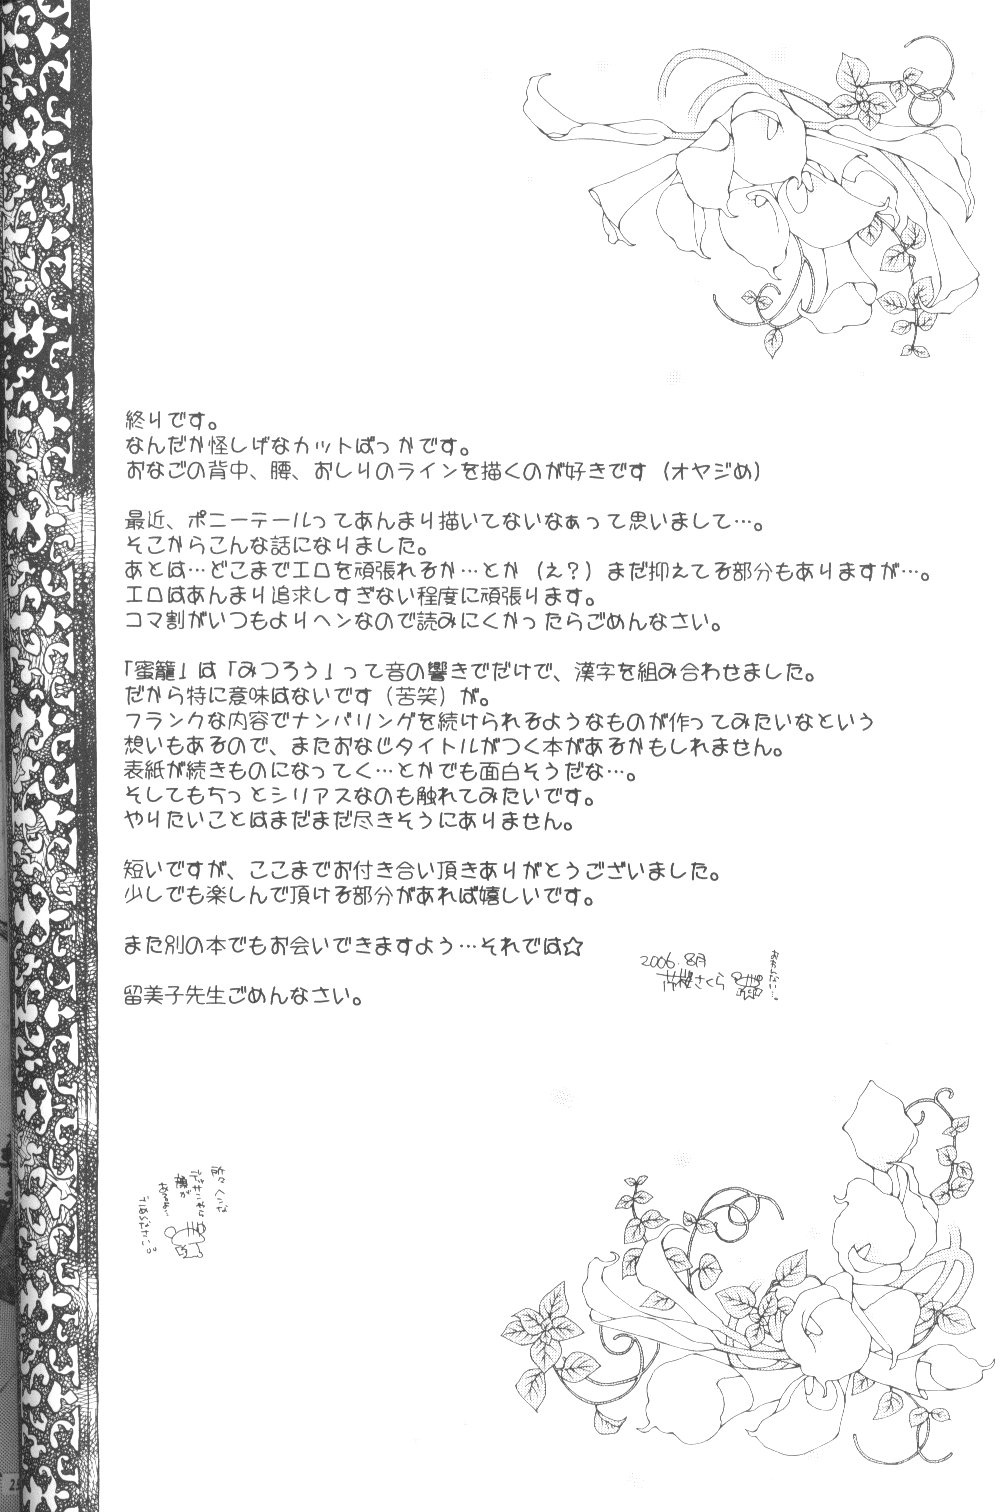 終りです。
なんだか怪しげなカットばっかです。
おなごの背中、腰、おしりのラインを描くのが好きです（オヤジめ）
最近、ポニーテールってあんまり描いてないなぁって思いまして…。
そこからこんな話になりました。
あとは…どこまでエロを頑張れるか…とか（え？）まだ抑えてる部分もありますが…。
エロはあんまり追求しすぎない程度に頑張ります。
コマ割がいつもよりヘンなので読みにくかったらごめんなさい。
「蜜籠」は「みつろう」って音の響きでだけで、漢字を組み合わせました。
だから特に意味はないです（苦笑）が。
フランクな内容でナンバリングを続けられるようなものが作ってみたいなという
想いもあるので、またおなじタイトルがつく本があるかもしれません。
表紙が続きものになってく…とかでも面白そうだな…。
そしてもちっとシリアスなのも触れてみたいです。
やりたいことはまだまだ尽きそうにありません。
短いですが、ここまでお付き合い頂きありがとうございました。
少しでも楽しんで頂ける部分があれば嬉しいです。
また別の本でもお会いできますよう…それでは☆
2006.8月
さくら
留美子先生ごめんなさい。